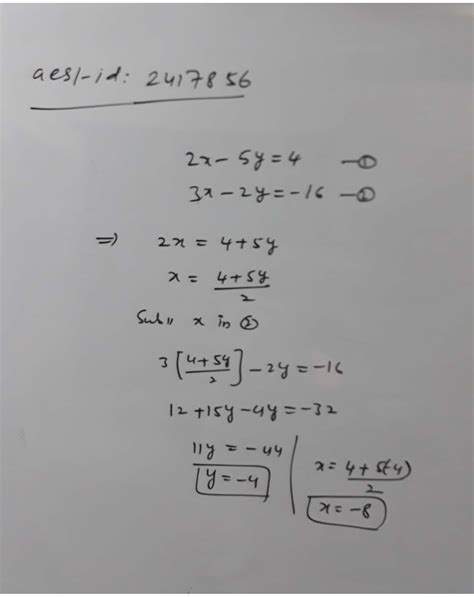 aesl-id: 2417856
2x - 5y = 4 —①
3x - 2y = -16 —②
⇒ 2x = 4 + 5y
x = (4 + 5y)/2
Sub〃 x in ②
3[(4 + 5y)/2] - 2y = -16
12 + 15y - 4y = -32
11y = -44
y = -4
x = (4 + 5(-4))/2
x = -8